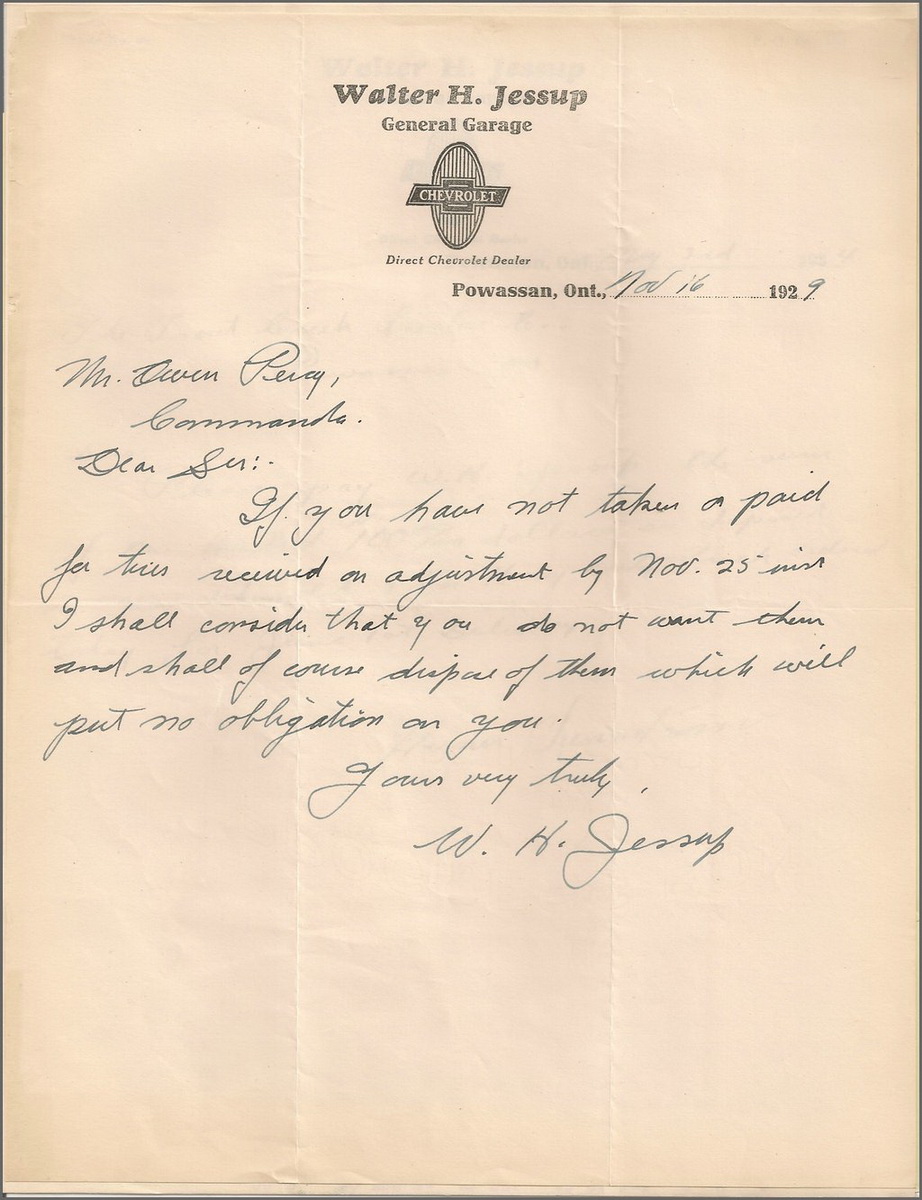 Walter H. Jessup
General Garage
CHEVROLET
Direct Chevrolet Dealer
Powassan, Ont., Nov 16 1929
Mr. Owen Percy,
Commanda.
Dear Sir:-
If you have not taken or paid
for tires received on adjustment by Nov. 25 inst
I shall consider that you do not want them
and shall of course dispose of them which will
put no obligation on you.
Yours very truly,
W. H. Jessup